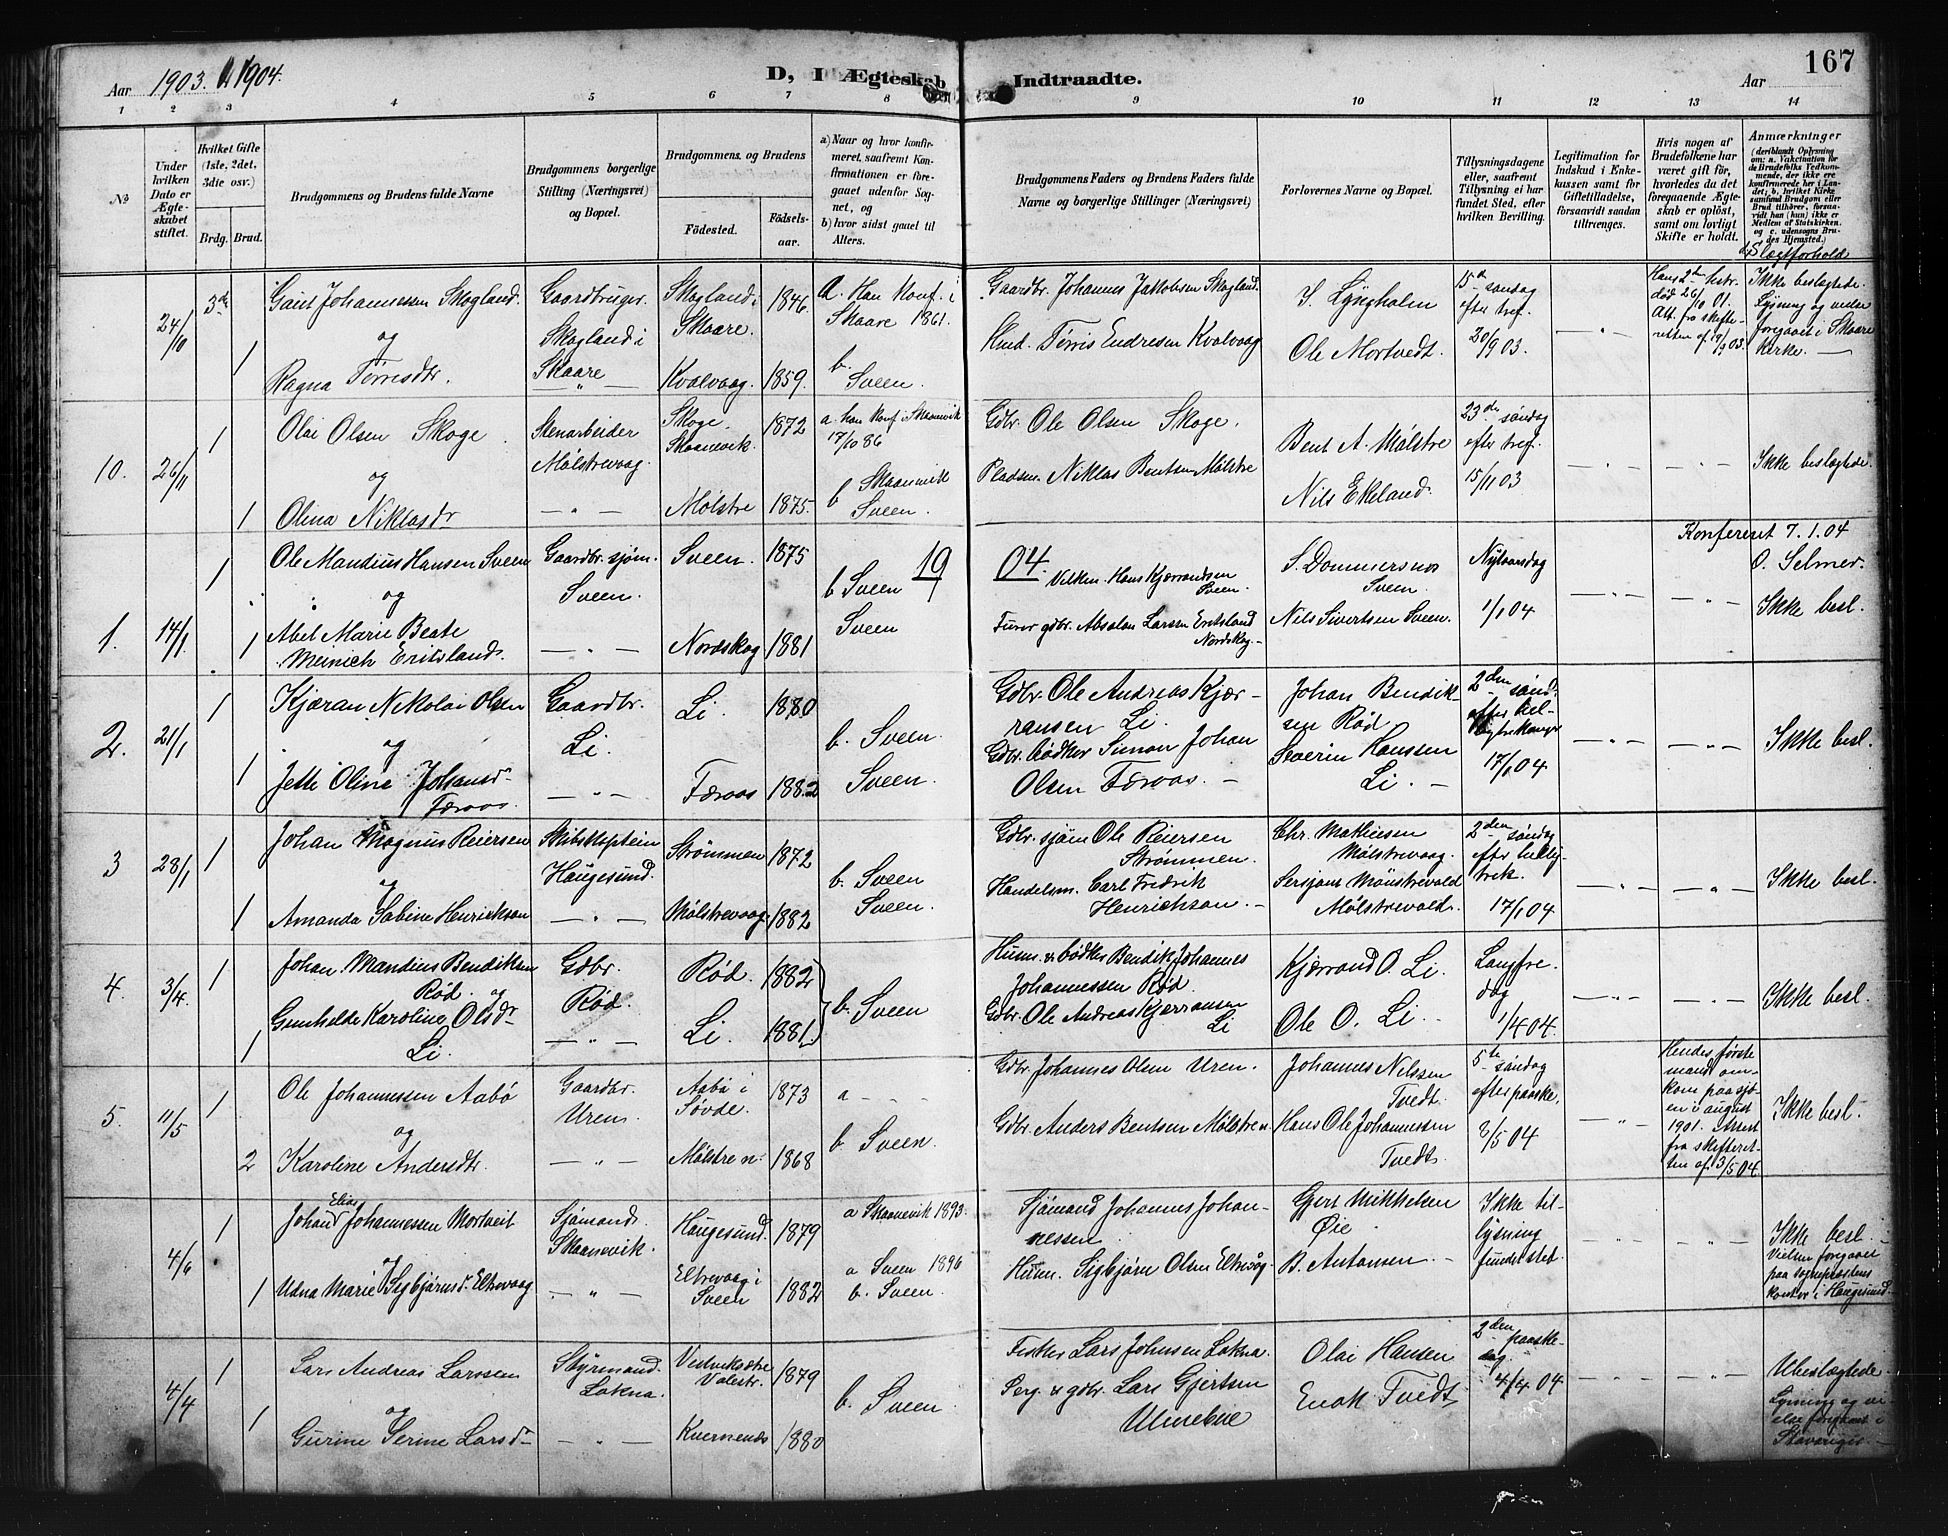 Aar 1903. 1904.
D, I Ægteskab Indtraadte.
Aar
167
1 2 3 4 5 6 7 8 9 10 11 12 13 14
№
Under hvilken Dato er Ægteskabet stiftet.
Hvilket Gifte (1ste, 2det, 3die osv.)
Brdg. Brud.
Brudgommens og Brudens fulde Navne
Brudgommens borgerlige Stilling (Næringsvei) og Bopæl.
Brudgommens og Brudens
Fødested.
Fødselsaar.
a) Naar og hvor konfirmeret, saafremt Konfirmationen er foregaaet udenfor Sognet, og
b) hvor sidst gaaet til Alters.
Brudgommens Faders og Brudens Faders fulde Navne og borgerlige Stillinger (Næringsvei)
Forlovernes Navne og Bopæl.
Tillysningsdagene eller, saafremt Tillysning ei har fundet Sted, efter hvilken Bevilling.
Legitimation for Indskud i Enkekassen samt for Giftetilladelse, forsaavidt saadan tiltrænges.
Hvis nogen af Brudefolkene har været gift før, hvorledes da det foregaaende Ægteskab er opløst, samt om lovligt Skifte er holdt.
Anmærkninger
(deriblandt Oplysning om: a. Vakcination for de Brudefolks Vedkommende, der ikke ere konfirmerede her i Landet; b. hvilket Kirkesamfund Brudgom eller Brud tilhører, forsaavidt han (hun) ikke er Medlem af Statskirken, og c. udensogns Brudes Hjemsted.)
d. Slegtforhold
24/10 3die Gaut Johannessen Skogland. Gaardbruger. Skogland i Skaare. 1846. a. Han konf. i Skaare 1861. Gaardbr. Johannes Jakobsen Skogland. S. Lyngholm 15de søndag efter tref. 20/9 03. Hans 2den hustr. død 26/10 01. Att. fra skifteretten af 19/9 03. Ikke beslægtede. Lysning og vielse foregaaet i Skaare Kirke.
og Skogland i Skaare
1 Ragna Tørresdtr. Kvalvaag. 1859. b. Sveen. Tørris Endresen Kvalvaag Ole Mortvedt.
10. 26/11 1 Olai Olsen Skoge. Stenarbeider Mølstrevaag. Skoge, Skaanevik. 1872 a. han konf. i Skaanevik 17/10 86 Gdbr. Ole Olsen Skoge. Bent A. Mølstre 23de søndag efter tref. 15/11 03 Ikke beslægtede.
og
1 Olina Niklasdr Mølstre 1875. b Skaanevik Sveen. Pladsm. Niklas Bentsen Mølstre Nils Ekeland.
1904.
Konfereret 7.1.04 O. Selmer.
1. 14/1 1 Ole Mandius Hansen Sveen Gaardbr. sjøm. Sveen. Sveen. 1875 b Sveen Hans Kjærrandsen Sveen. S. Dommersnes Sveen. Nytaarsdag 1/1 04 Ikke besl.
og
1 Abel Marie Beate Meinich Eritsland. Nordskog 1881 Sveen gdbr. Absalon Larssen Eritsland Nordskog. Nils Sivertsen Sveen.
2. 21/1 1 Kjæran Nikolai Olsen Gaardbr. Li. Li. 1880 b. Sveen. Gdbr. Ole Andreas Kjærransen Li. Johan Bendiksen Rød 2den sønd. efter 17/1 04 Ikke besl.
og
1 Jette Oline Johansdr Færaas. Færaas 1882 Sveen. Gdbr. bødker Simon Johan Olsen Færaas. Severin Hanssen Li.
3 28/1 1 Johan Magnus Reiersen Skibskaptein Haugesund. Strømmen 1872 b. Sveen Gdbr. sjøm Ole Reiersen Strømmen. Chr. Mathiesen Mølstrevaag. 2den søndag efter hellig trek. 17/1 04 Ikke besl.
og
1 Amanda Sabine Henrickson Mølstrevaag 1882 Sveen. Handelsm. Carl Fredrik Henrichson. Mønstrevold Mølstrevold.
4. 3/4 1 Johan Mandius Bendiksen Rød. og Gdbr. Rød. Rød. 1882 b. Sveen Husm. & bødker Bendik Johannes Johannessen Rød. Kjærrand O. Li. Langfredag 1/4 04. Ikke besl.
1 Gunhilde Karoline Olsdr Li. Li. 1881. Gdbr. Ole Andreas Kjærransen Li Ole O. Li.
5. 11/5 1 Ole Johannessen Aabø Gaardbr. Uren. Aabø i Søvde. 1873 a Gdbr. Johannes Olsen Uren. Johannes Nilssen Tvedt. 5te søndag efter paaske. 8/5 04 Hendes første mand omkom paa sjøen i august 1901. Attest fra skifteretten af 3/5 04. Ikke besl.
og
2 Karoline Andersdtr. Mølstre n. 1868 b. Sveen. Gdbr. Anders Bentsen Mølstre n. Hans Ole Johannessen Tvedt.
4/6 1 Johan Elias Johannessen Mortveit Sjømand. Skaanevik. Haugesund. 1879 a Skaanevik 1893. Sjømand Johannes Johannessen. Gjert Mikkelsen Øie Ikke tillysning fundet sted Ikke besl. Vielsen foregaaet paa sogneprestens kontor i Haugesund.
og
1 Udna Marie Sigbjørnsd. Eltrevaag Eltrevaag i Sveen 1882 a Sveen 1896 b. Sveen. Husm. Sigbjørn Olsen Eltrevåg. B. Antonsen.
4/4 1 Lars Andreas Larssen Styrmand. Lokna. Valestr. 1879 b. Sveen. Fisker Lars Johnsen Lokna. Olai Hansen 2den paaskedag. 4/4 04 Ubeslægtede Lysning og vielse foregaaet i Stavanger.
og
1 Gurine Serine Larsd. Kvernenes 1880 gdbr. Lars Gjertsen Enok Tvedt